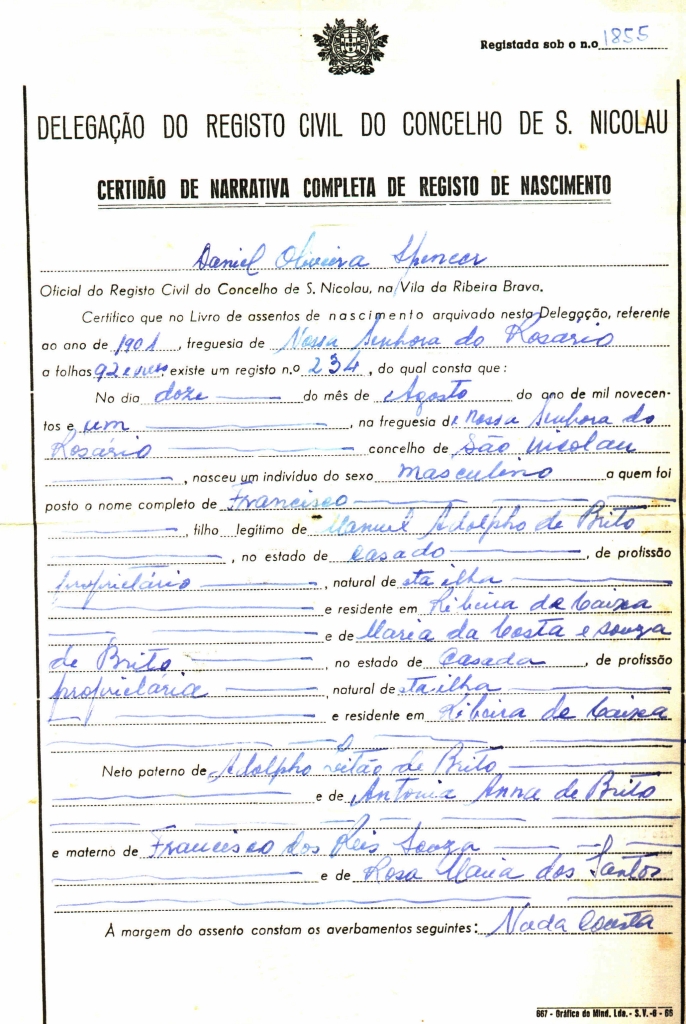 Registada sob o n.o 1855
DELEGAÇÃO DO REGISTO CIVIL DO CONCELHO DE S. NICOLAU
CERTIDÃO DE NARRATIVA COMPLETA DE REGISTO DE NASCIMENTO
Daniel Oliveira Spencer
Oficial do Registo Civil do Concelho de S. Nicolau, na Vila da Ribeira Brava.
Certifico que no Livro de assentos de nascimento arquivado nesta Delegação, referente
ao ano de 1901, freguesia de Nossa Senhora do Rosário
a folhas 92 e verso existe um registo n.o 234, do qual consta que:
No dia doze do mês de Agosto do ano de mil novecen-
tos e um, na freguesia de Nossa Senhora do
Rosário concelho de São Nicolau
, nasceu um indivíduo do sexo masculino a quem foi
posto o nome completo de Francisco
, filho legitimo de Manuel Adolpho de Brito
, no estado de casado, de profissão
proprietário, natural de sta ilha
e residente em Ribeira da Caixa
e de Maria da Costa e Souza
de Brito, no estado de Casada, de profissão
proprietária, natural de sta ilha
e residente em Ribeira de Caixa
Neto paterno de Adolpho de Brito
e de Antonia Anna de Brito
e materno de Francisco dos Reis Souza
e de Rosa Maria dos Santos
À margem do assento constam os averbamentos seguintes: Nada Consta
667 - Gráfica do Mind. Lda. - S.V.-6-66